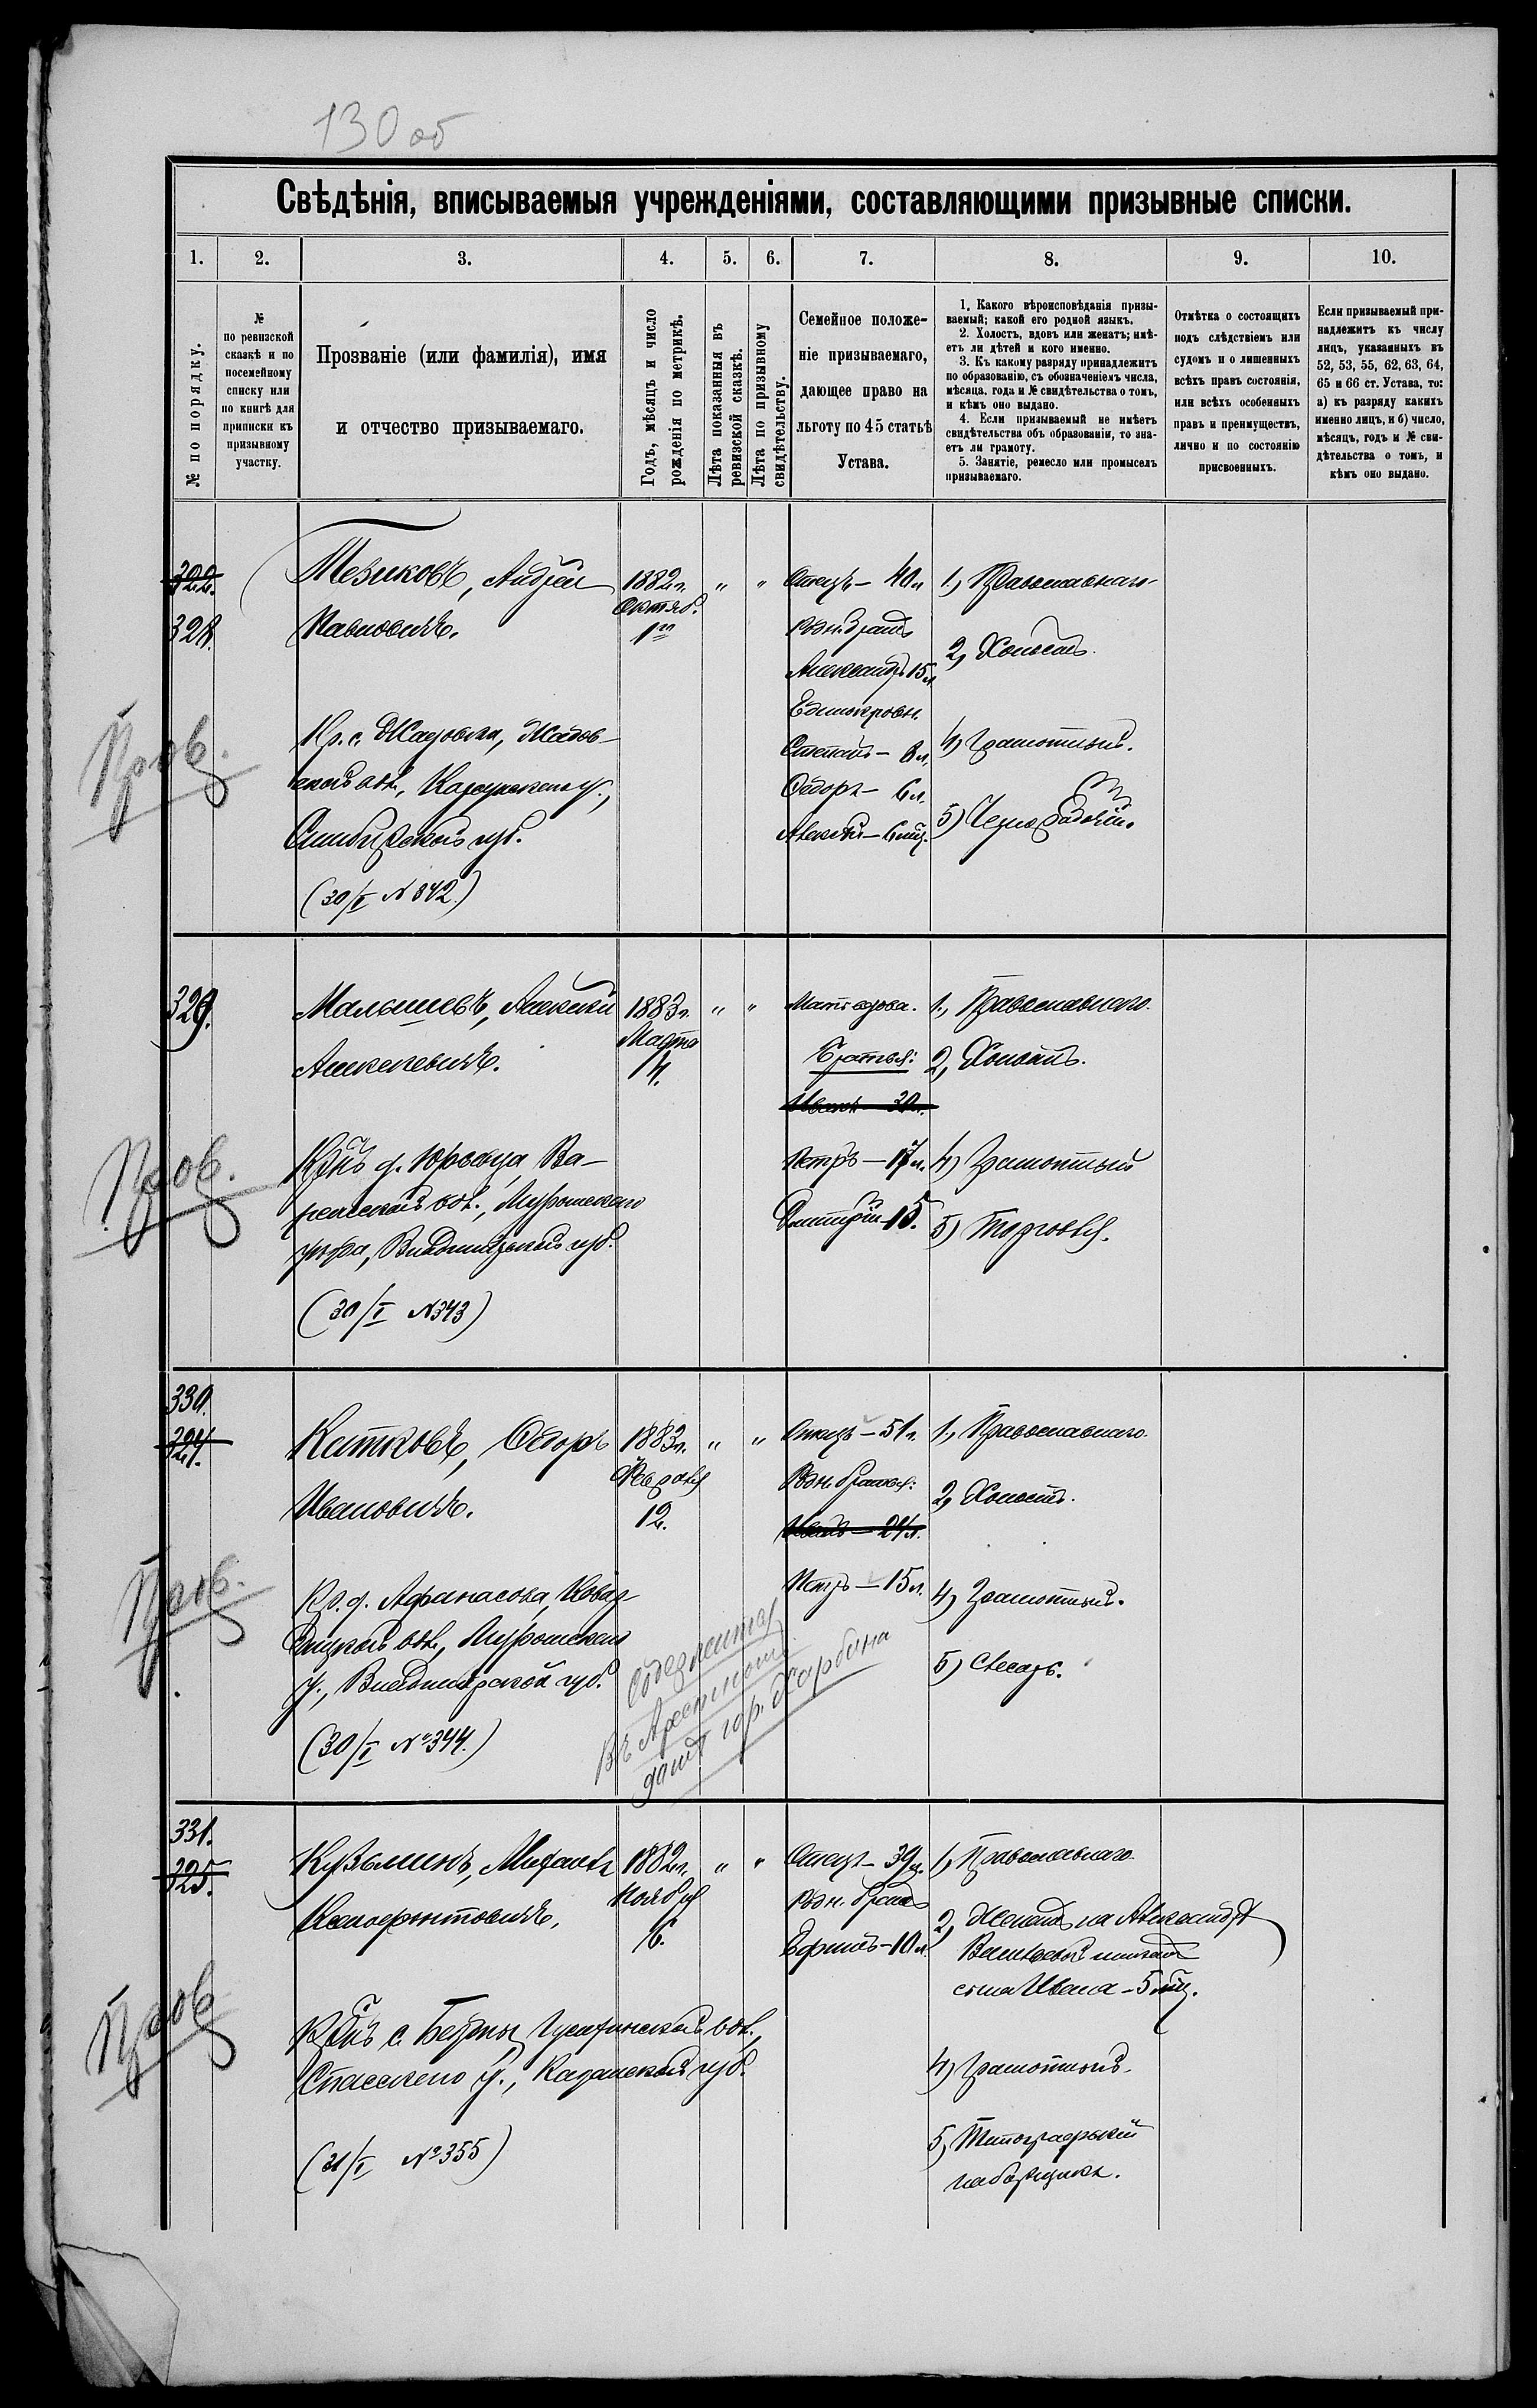 130 об
Свѣдѣнія, вписываемыя учрежденіями, составляющими призывные списки.
1. 2. 3. 4. 5. 6. 7. 8. 9. 10.
№ по порядку.
№
по ревизской
сказкѣ и по
посемейному
списку или
по книгѣ для
приписки къ
призывному
участку.
Прозваніе (или фамилія), имя
и отчество призываемаго.
Годъ, мѣсяцъ и число
рожденія по метрикѣ.
Лѣта показанныя въ
ревизской сказкѣ.
Лѣта по призывному
свидѣтельству.
Семейное положе-
ніе призываемаго,
дающее право на
льготу по 45 статьѣ
Устава.
1. Какого вѣроисповѣданія призы-
ваемый; какой его родной языкъ.
2. Холостъ, вдовъ или женатъ; имѣ-
етъ ли дѣтей и кого именно.
3. Къ какому разряду принадлежитъ
по образованію, съ обозначеніемъ числа,
мѣсяца, года и № свидѣтельства о томъ,
и кѣмъ оно выдано.
4. Если призываемый не имѣетъ
свидѣтельства объ образованіи, то зна-
етъ ли грамоту.
5. Занятіе, ремесло или промыселъ
призываемаго.
Отмѣтка о состоящихъ
подъ слѣдствіемъ или
судомъ и о лишенныхъ
всѣхъ правъ состоянія,
или всѣхъ особенныхъ
правъ и преимуществъ,
лично и по состоянію
присвоенныхъ.
Если призываемый при-
надлежитъ къ числу
лицъ, указанныхъ въ
52, 53, 55, 62, 63, 64,
65 и 66 ст. Устава, то:
а) къ разряду какихъ
именно лицъ, и б) число,
мѣсяцъ, годъ и № сви-
дѣтельства о томъ, и
кѣмъ оно выдано.
322.
328.
Пров.
Тезиковъ, Андрей
Павловичъ.
Кр. с.
Симбирской губ.
(30/I № 342.)
1882 г.
Октяб.
1го
" "
Отецъ – 40 л
Родн. братъ
Александръ 15 л.
Единокровн.
Степанъ – 8 л.
Ѳедоръ – 6 л.
Алексѣй – 6 мѣц.
1, Православнаго
2, Холостъ.
4) Грамотный.
5) Чернорабочій.
329.
Пров.
Малышевъ, Алексѣй
Алексѣевичъ.
Кр–нъ д. Юрьевца, Ва-
режской вол., Муромскаго
уѣзда, Владимірской губ.
(30/I № 343)
1883 г.
Марта
14.
" "
Мать вдова.
Братья:
Иванъ – 30 л.
Петръ – 17 л.
Дмитрій – 15.
1, Православнаго.
2, Холостъ.
4) Грамотный
5) Торговля.
330.
324.
Пров.
Катковъ, Ѳедоръ
Ивановичъ.
Кр. д. Афанасова, Ковар-
дицкой вол., Муромскаго
у., Владимірской губ.
(30/I № 344.)
1883 г.
Февраля
12.
" "
Содержится
въ Арестномъ
домѣ гор. Харбина
Отецъ – 51 г.
Родн. братья:
Иванъ – 24 л.
Петръ – 15 л.
1, Православнаго
2, Холостъ.
4) Грамотный.
5) Слесарь.
331.
325.
Пров
Кузьминъ, Михаилъ
Ксенофонтовичъ.
Кр–нъ с. Бездны,
Спасскаго у., Казанской губ.
(31/I № 355)
1882 г.
Ноября
6.
" "
Отецъ – 39 л.
Родн. братъ
Ефимъ – 10 л.
1, Православнаго
2, Женатъ на Александрѣ
Васильевой имѣетъ
сына Ивана – 5 мѣц.
4) Грамотный.
5, Типографскій
наборщикъ.